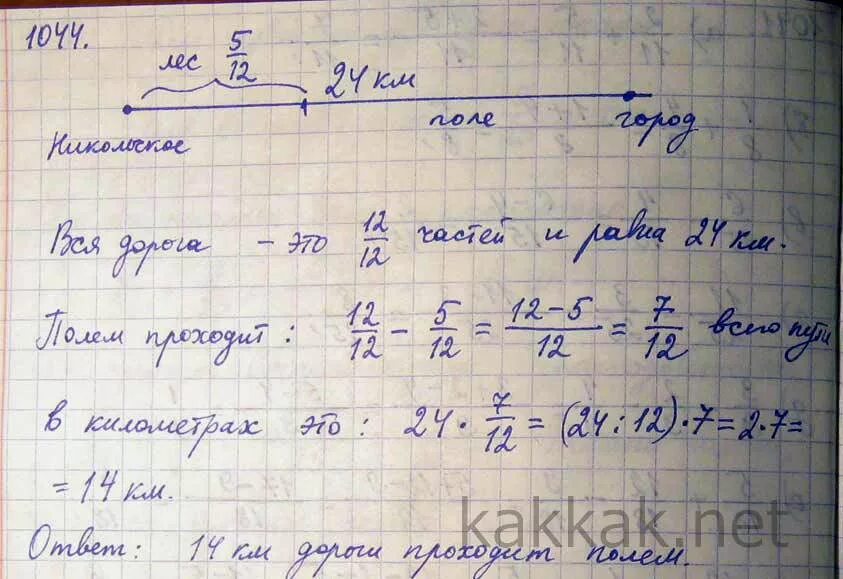 1044.
лес 5/12
24 км
поле
город
Никольское
Вся дорога - это 12/12 частей и равна 24 км.
Полем проходит: 12/12 - 5/12 = (12-5)/12 = 7/12 всего пути
в километрах это: 24 · 7/12 = (24:12)·7 = 2·7 =
= 14 км.
kakkak.net
Ответ: 14 км дороги проходит полем.